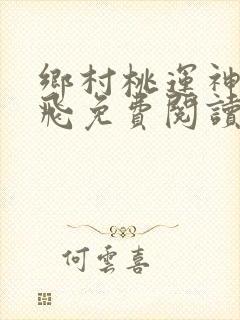 鄉村桃運神
飛免費閱讀
何雲喜